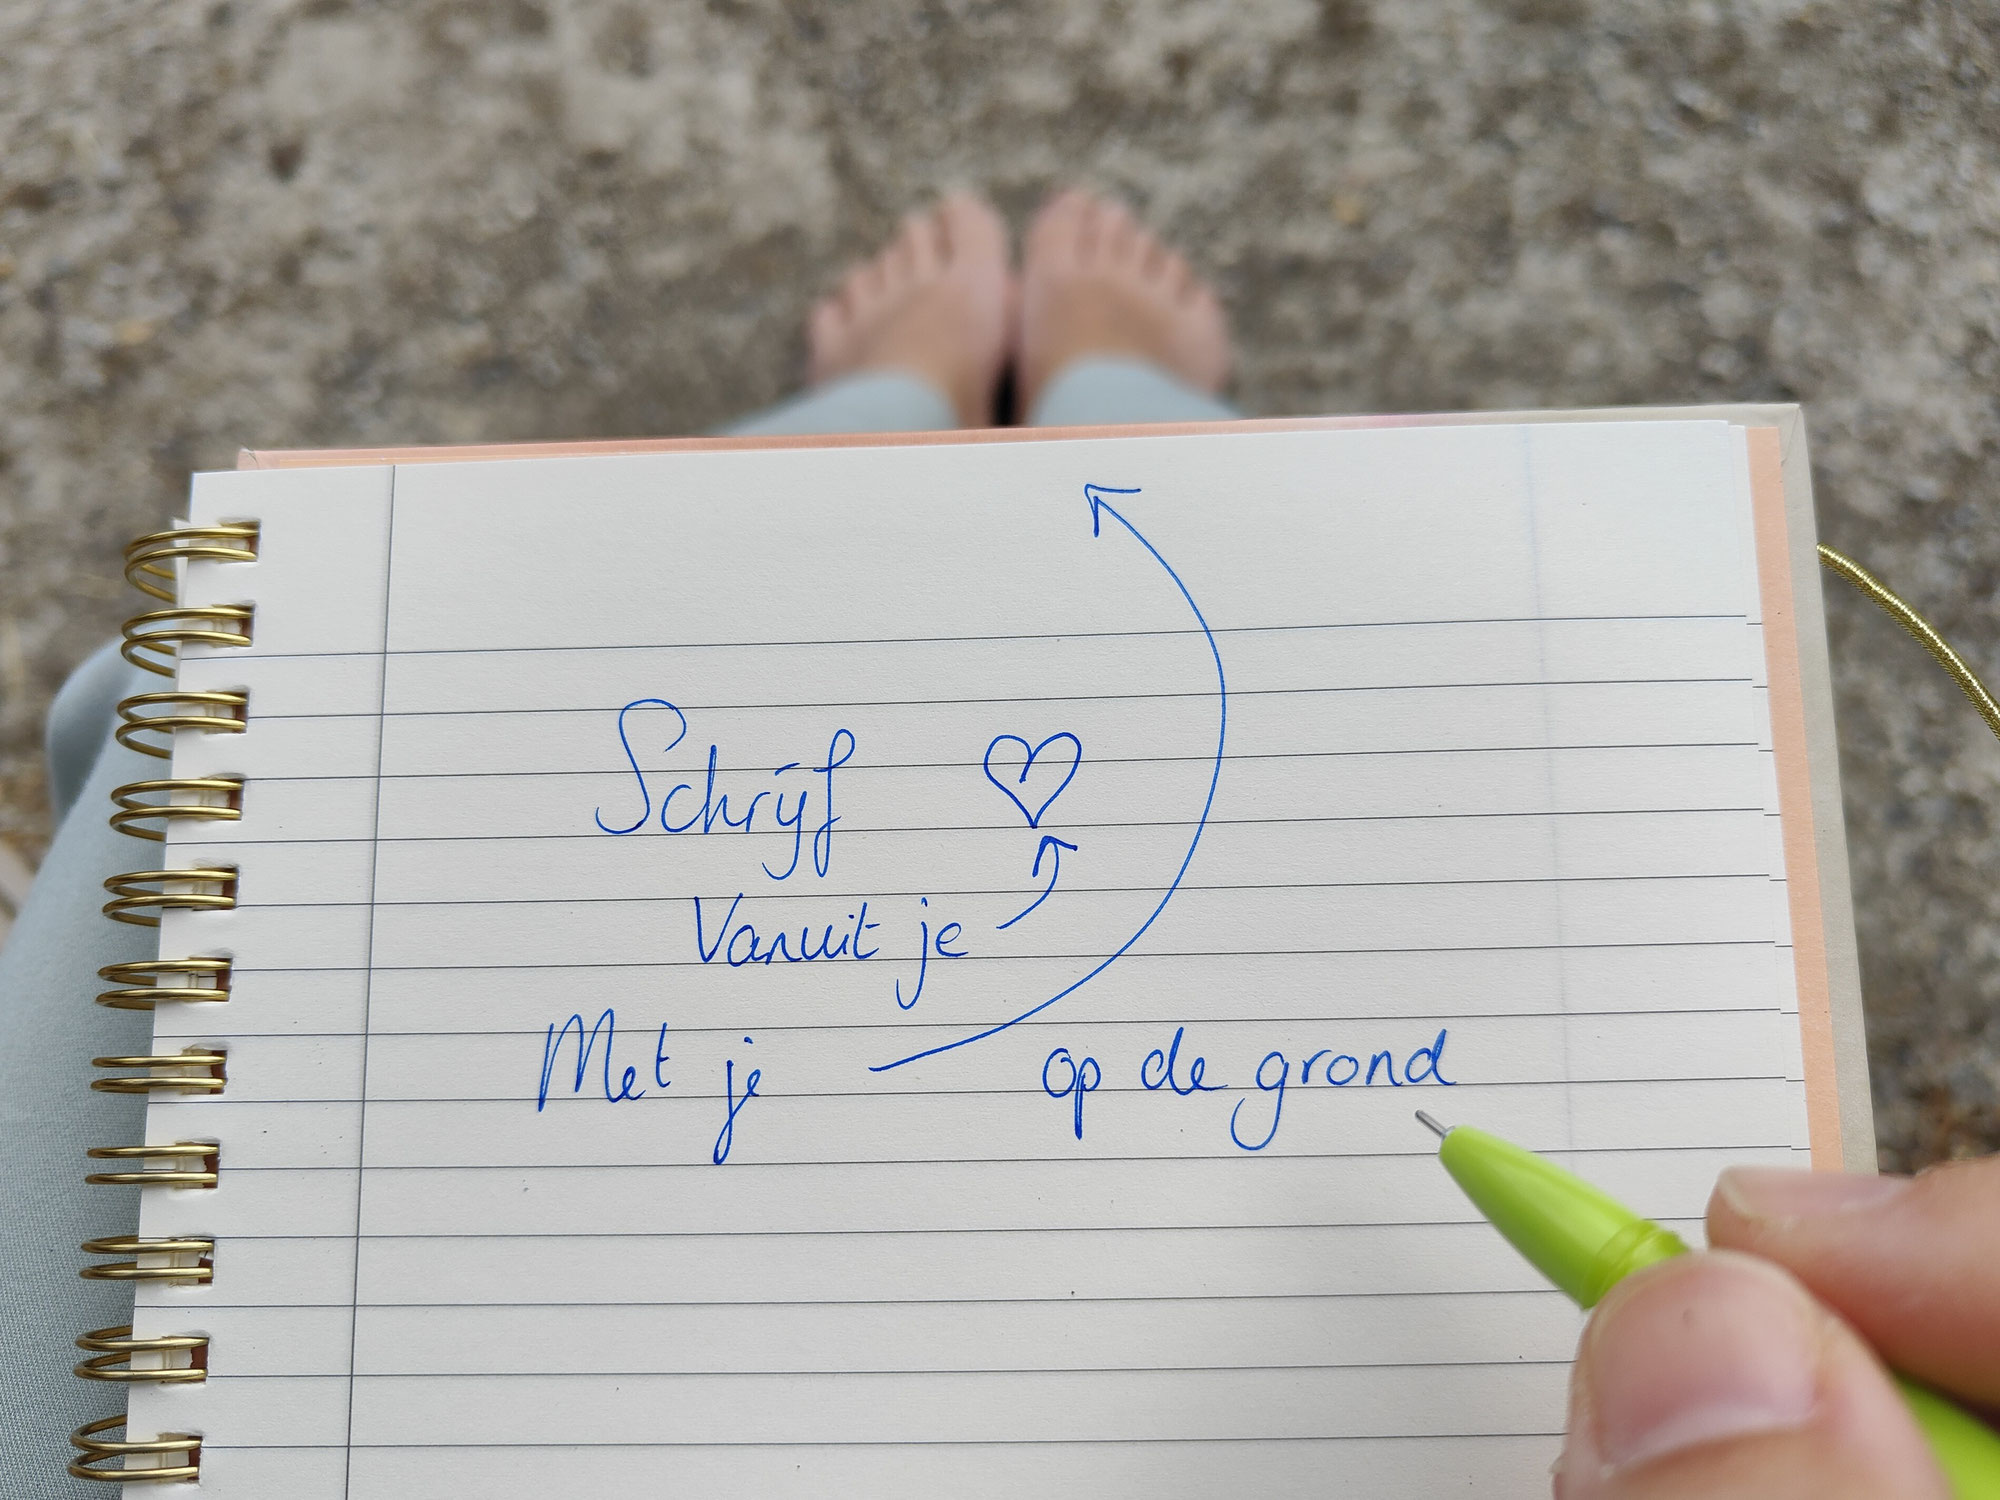 Schrijf
Vanuit je
Met je op de grond